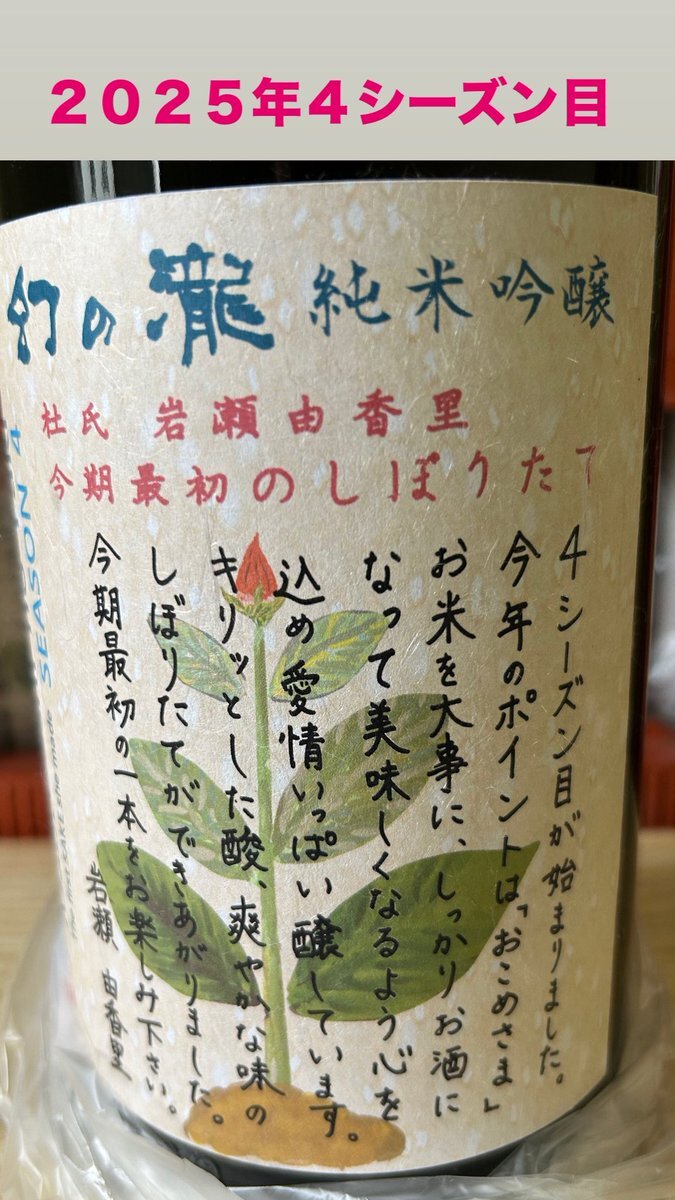 2025年4シーズン目
幻の瀧 純米吟醸
杜氏 岩瀬由香里
今期最初のしぼりたて
4シーズン目が始まりました。
今年のポイントは「おこめさま」
お米を大事に、しっかりお酒に
なって美味しくなるよう心を
込め愛情いっぱい醸しています。
キリッとした酸、爽やかな味の
しぼりたてができあがりました。
今期最初の一本をお楽しみ下さい。
岩瀬 由香里
SEASON 4